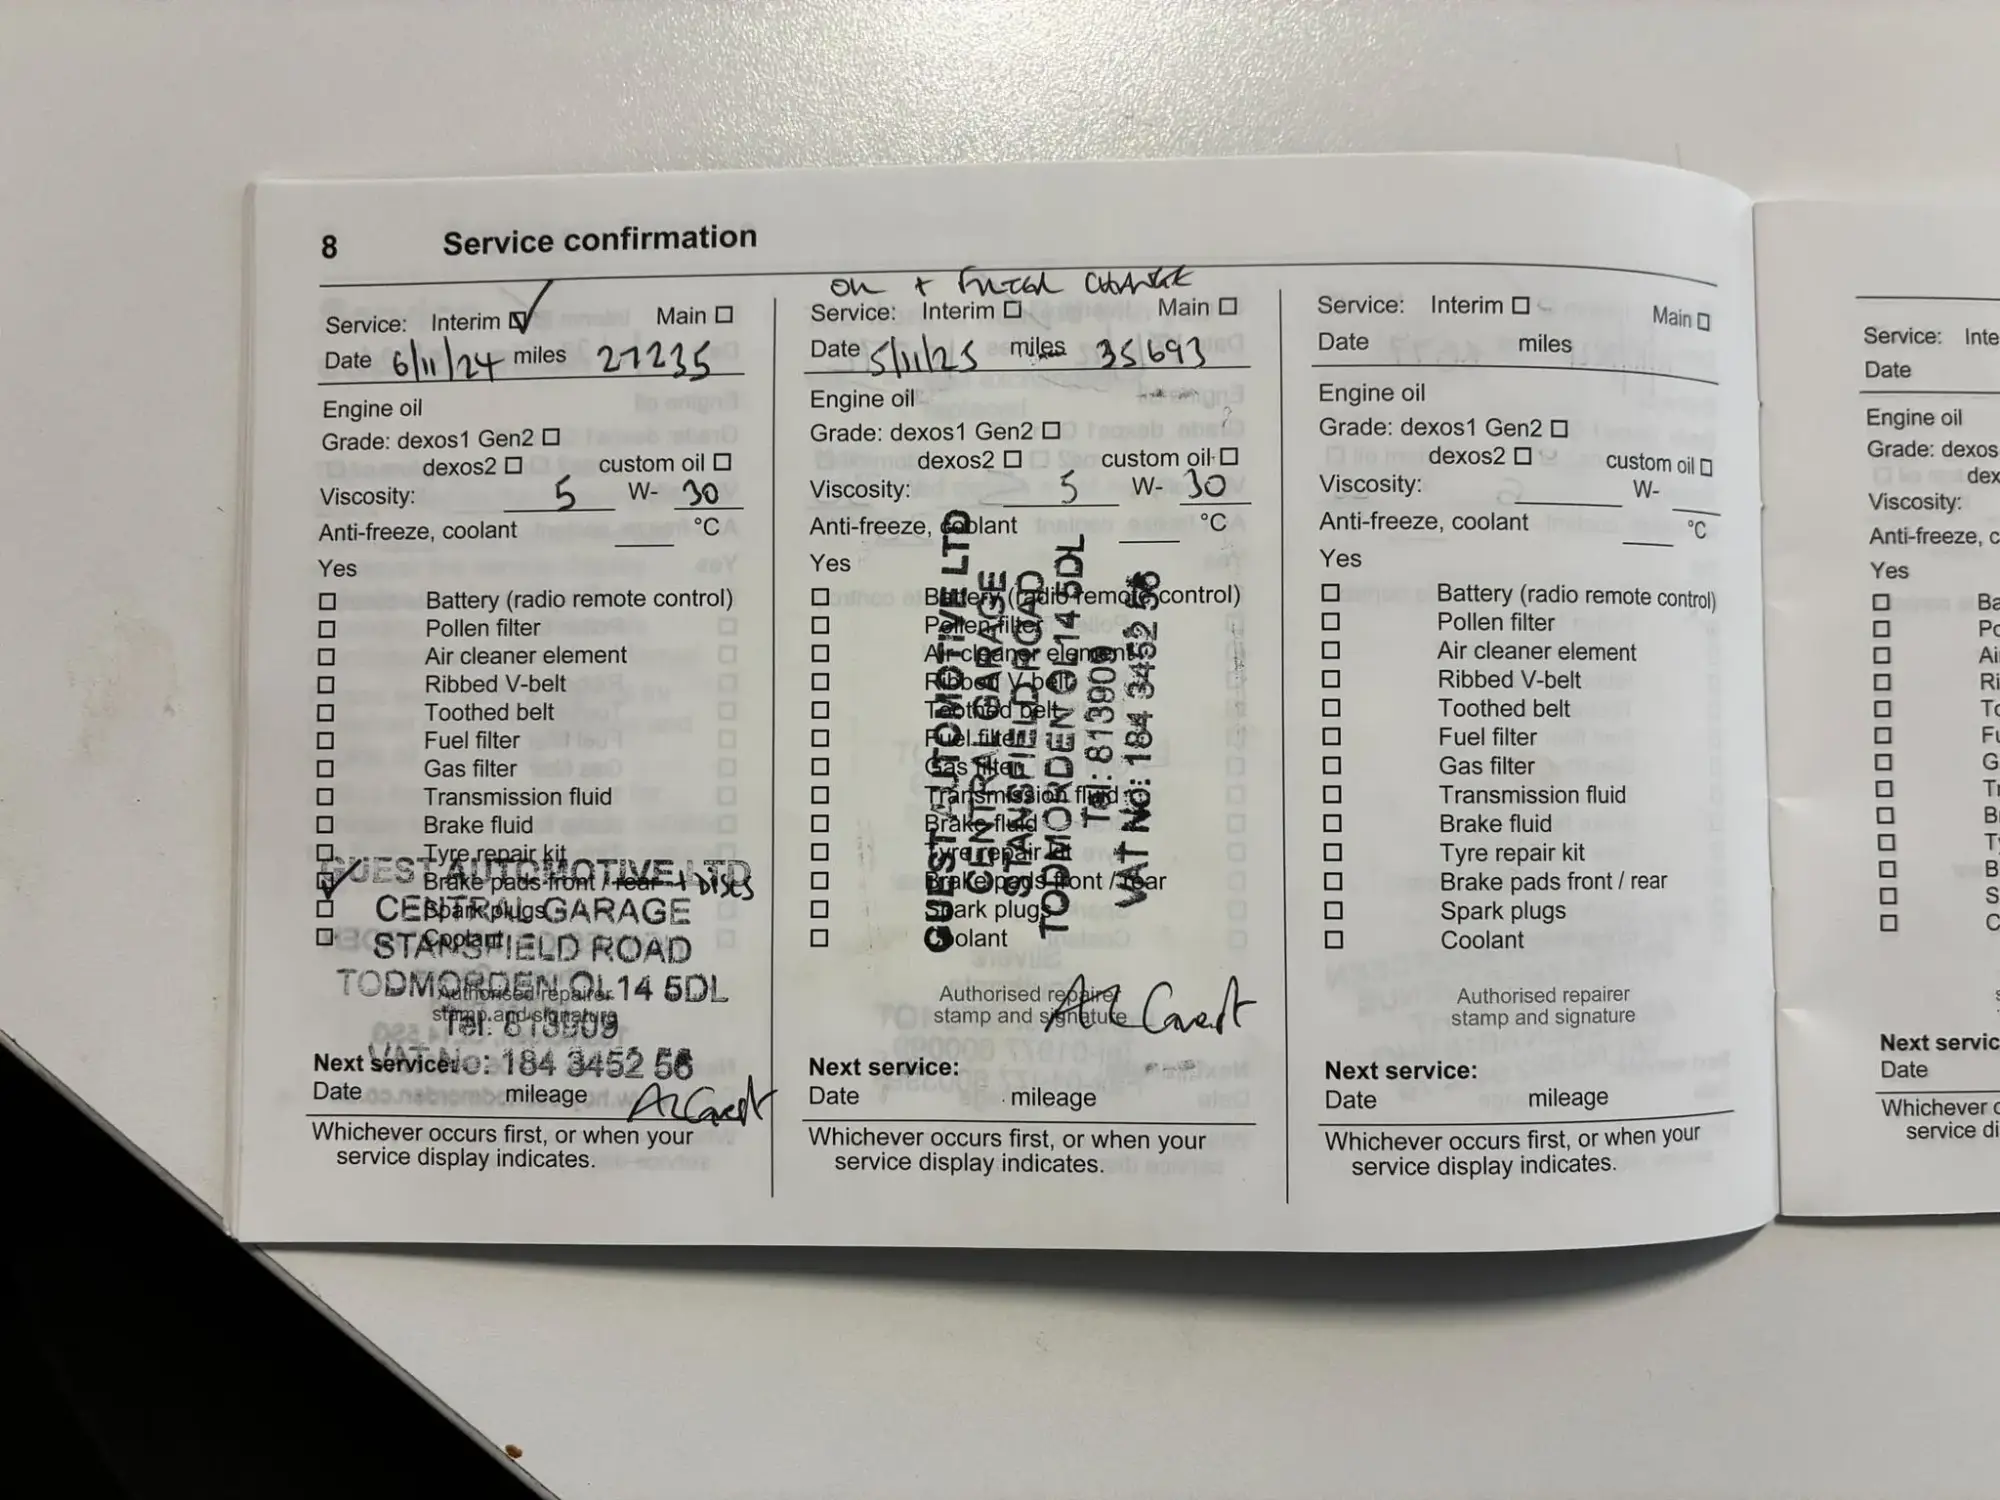 8 Service confirmation
Service: Interim Main
Date 6/11/24 miles 27235
Engine oil
Grade: dexos1 Gen2
dexos2 custom oil
Viscosity: 5 W- 30
Anti-freeze, coolant °C
Yes
Battery (radio remote control)
Pollen filter
Air cleaner element
Ribbed V-belt
Toothed belt
Fuel filter
Gas filter
Transmission fluid
Brake fluid
Tyre repair kit
GUEST AUTOMOTIVE LTD
Brake pads front / rear + DISCS
Spark plugs
CENTRAL GARAGE
Coolant
STANSFIELD ROAD
TODMORDEN OL14 5DL
Authorised repairer
stamp and signature
Tel: 813909
VAT No: 184 3452 56
Next service:
Date mileage
Whichever occurs first, or when your
service display indicates.
OIL + FILTER CHANGE
Service: Interim Main
Date 5/11/25 miles 35693
Engine oil
Grade: dexos1 Gen2
dexos2 custom oil
Viscosity: 5 W- 30
Anti-freeze, coolant °C
Yes
Battery (radio remote control)
Pollen filter
Air cleaner element
Ribbed V-belt
Toothed belt
Fuel filter
Gas filter
Transmission fluid
Brake fluid
Tyre repair kit
Brake pads front / rear
Spark plugs
Coolant
GUEST AUTOMOTIVE LTD
CENTRAL GARAGE
STANSFIELD ROAD
TODMORDEN OL14 5DL
Tel: 813909
VAT No: 184 3452 56
Authorised repairer
stamp and signature
Next service:
Date mileage
Whichever occurs first, or when your
service display indicates.
Service: Interim Main
Date miles
Engine oil
Grade: dexos1 Gen2
dexos2 custom oil
Viscosity: W-
Anti-freeze, coolant °C
Yes
Battery (radio remote control)
Pollen filter
Air cleaner element
Ribbed V-belt
Toothed belt
Fuel filter
Gas filter
Transmission fluid
Brake fluid
Tyre repair kit
Brake pads front / rear
Spark plugs
Coolant
Authorised repairer
stamp and signature
Next service:
Date mileage
Whichever occurs first, or when your
service display indicates.
Service: Inte
Date
Engine oil
Grade: dexos
dex
Viscosity:
Anti-freeze, c
Yes
Ba
Po
Ai
Ri
To
Fu
G
Tr
B
Ty
B
S
C
Next servic
Date
Whichever o
service di